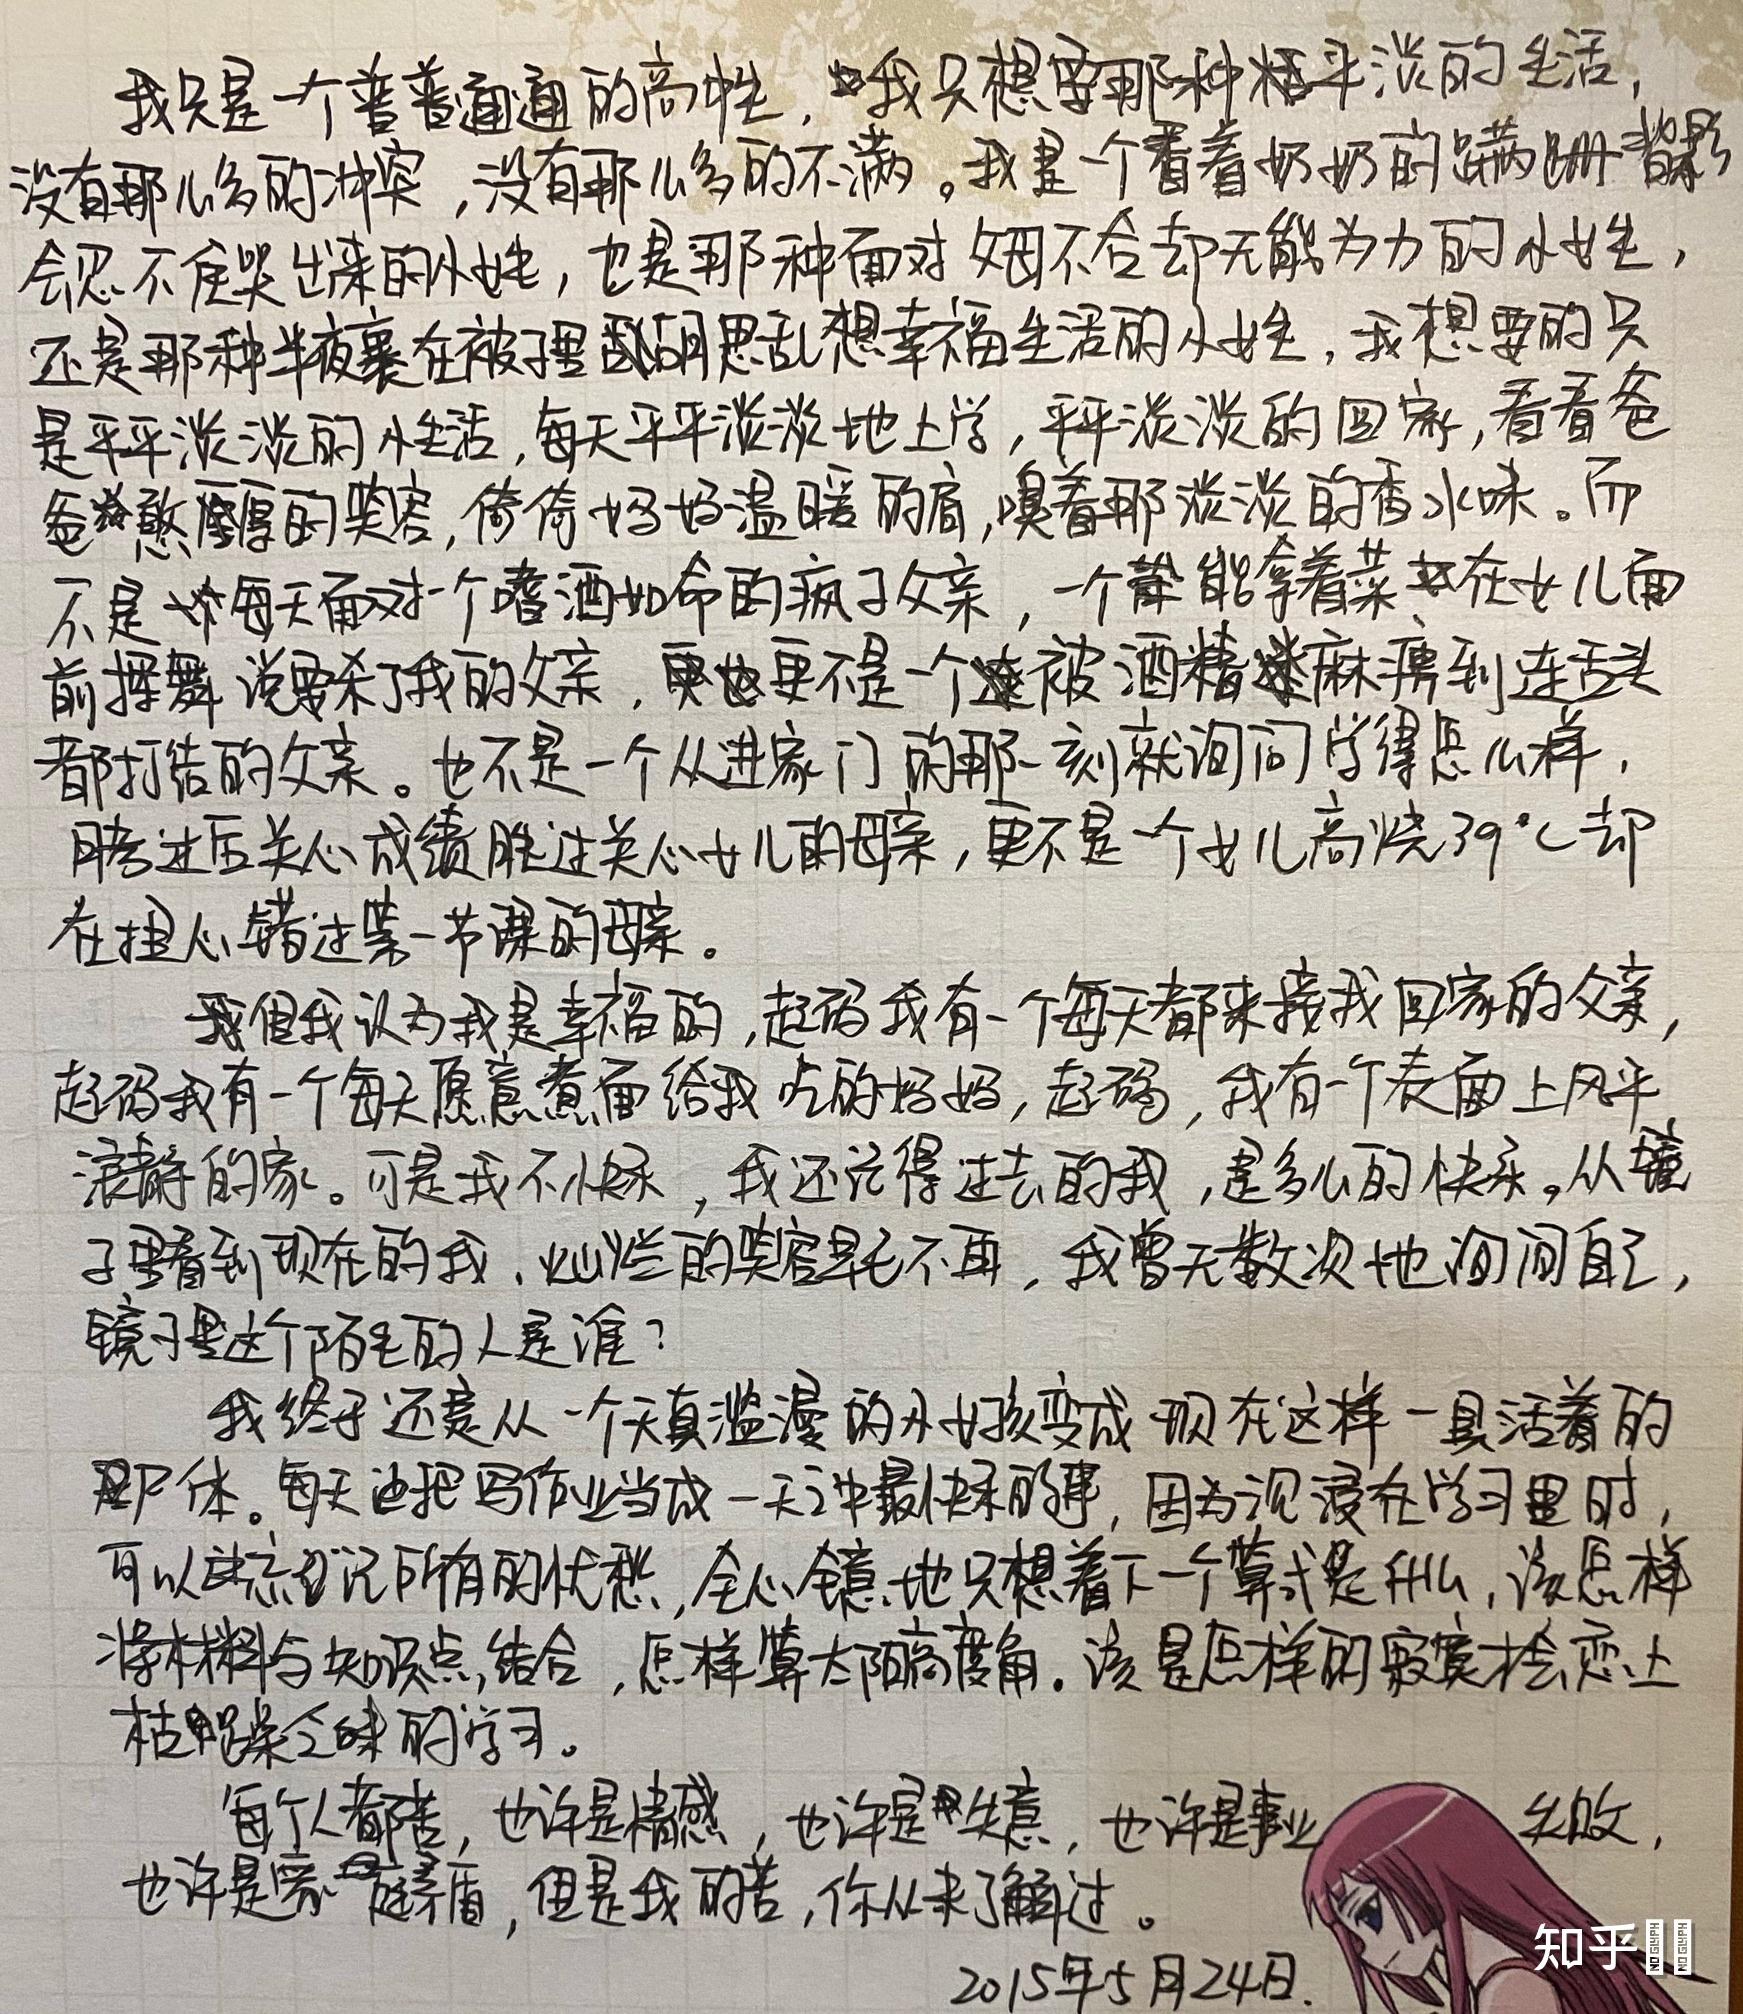 我只是一个普普通通的高中生，我只想要那种平淡的生活，
没有那么多的冲突，没有那么多的不满。我是一个看着奶奶的蹒跚背影
会忍不住哭出来的小女生，也是那种面对父母不合却无能为力的小女生，
还是那种半夜裹在被子里胡思乱想幸福生活的小女生，我想要的只
是平平淡淡的小生活，每天平平淡淡地上学，平平淡淡的回家，看看爸
爸憨厚的笑容，倚倚妈妈温暖的肩，嗅着那淡淡的香水味。而
不是每天面对一个嗜酒如命的疯子父亲，一个能拿着菜刀在女儿面
前挥舞说要杀了我的父亲，更不是一个被酒精麻痹到连舌头
都打结的父亲。也不是一个从进家门的那一刻就询问学得怎么样，
月考过后关心成绩胜过关心女儿的母亲，更不是一个女儿高烧39℃却
在担心错过第一节课的母亲。
但我认为我是幸福的，起码我有一个每天都来接我回家的父亲，
起码我有一个每天愿意煮面给我吃的妈妈，起码，我有一个表面上风平
浪静的家。可是我不快乐，我还记得过去的我，是多么的快乐。从镜
子里看到现在的我，灿烂的笑容早已不再，我曾无数次地询问自己，
镜子里这个陌生的人是谁？
我终于还是从一个天真滥漫的小女孩变成现在这样一具活着的
尸体。每天也把写作业当成一天之中最快乐的事，因为沉浸在学习里时，
可以忘记所有的忧愁，全心全意地只想着下一个算式是什么，该怎样
将材料与知识点结合，怎样算太阳高度角。该是怎样的寂寞才会恋上
枯燥乏味的学习。
每个人都苦，也许是情感，也许是失意，也许是事业失败，
也许是家庭矛盾，但是我的苦，你从未了解过。
2015年5月24日.
知乎